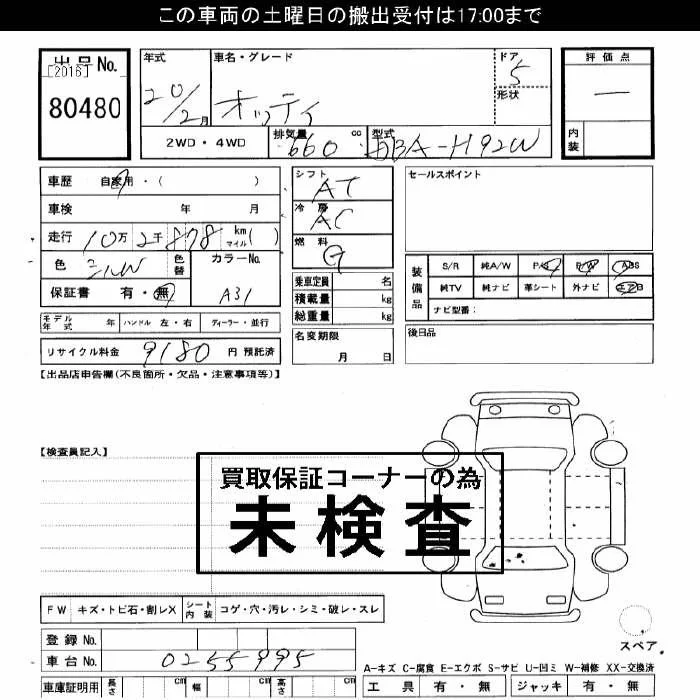 この車両の土曜日の搬出受付は17:00まで
出品No.
[2016]
80480
年式
20/2月
車名・グレード
オッティ
ドア
5
形状
評価点
—
内装
2WD・4WD
排気量
660 cc
型式
DBA-H92W
車歴 自家用・( )
車検 年 月
走行 10万2千878 km マイル( )
色 シルバ
色替
カラーNo.
A31
保証書 有・無
モデル年式 年 ハンドル 左・右 ディーラー・並行
リサイクル料金 9180 円 預託済
シフト
AT
冷房
AC
燃料
G
乗車定員 名
積載量 kg
総重量 kg
名変期限
月 日
セールスポイント
装備品
S/R 純A/W P/S P/W ABS
純TV 純ナビ 革シート 外ナビ エアB
ナビ型番:
後日品
【出品店申告欄(不良箇所・欠品・注意事項等)】
【検査員記入】
買取保証コーナーの為
未検査
FW キズ・トビ石・割レX シート内装 コゲ・穴・汚レ・シミ・破レ・スレ
登録No.
車台No. 0255995
車庫証明用 長さ cm 幅 cm 高さ cm
スペア
A-キズ C-腐食 E-エクボ S-サビ U-凹ミ W-補修 XX-交換済
工具 有・無 ジャッキ 有・無